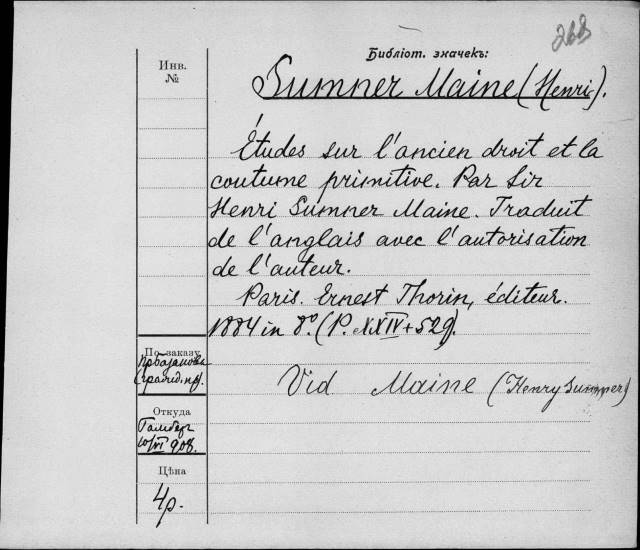 268
Библіот. значекъ:
Инв.
№
Sumner Maine (Henri).
Études sur l'ancien droit et la
coutume primitive. Par Sir
Henri Sumner Maine. Traduit
de l'anglais avec l'autorisation
de l'auteur.
Paris. Ernest Thorin, éditeur.
1884 in 8º. (P. XXIV+529).
По заказу
Vid Maine (Henry Sumner)
Откуда
10/VI 908.
Цѣна
4р.